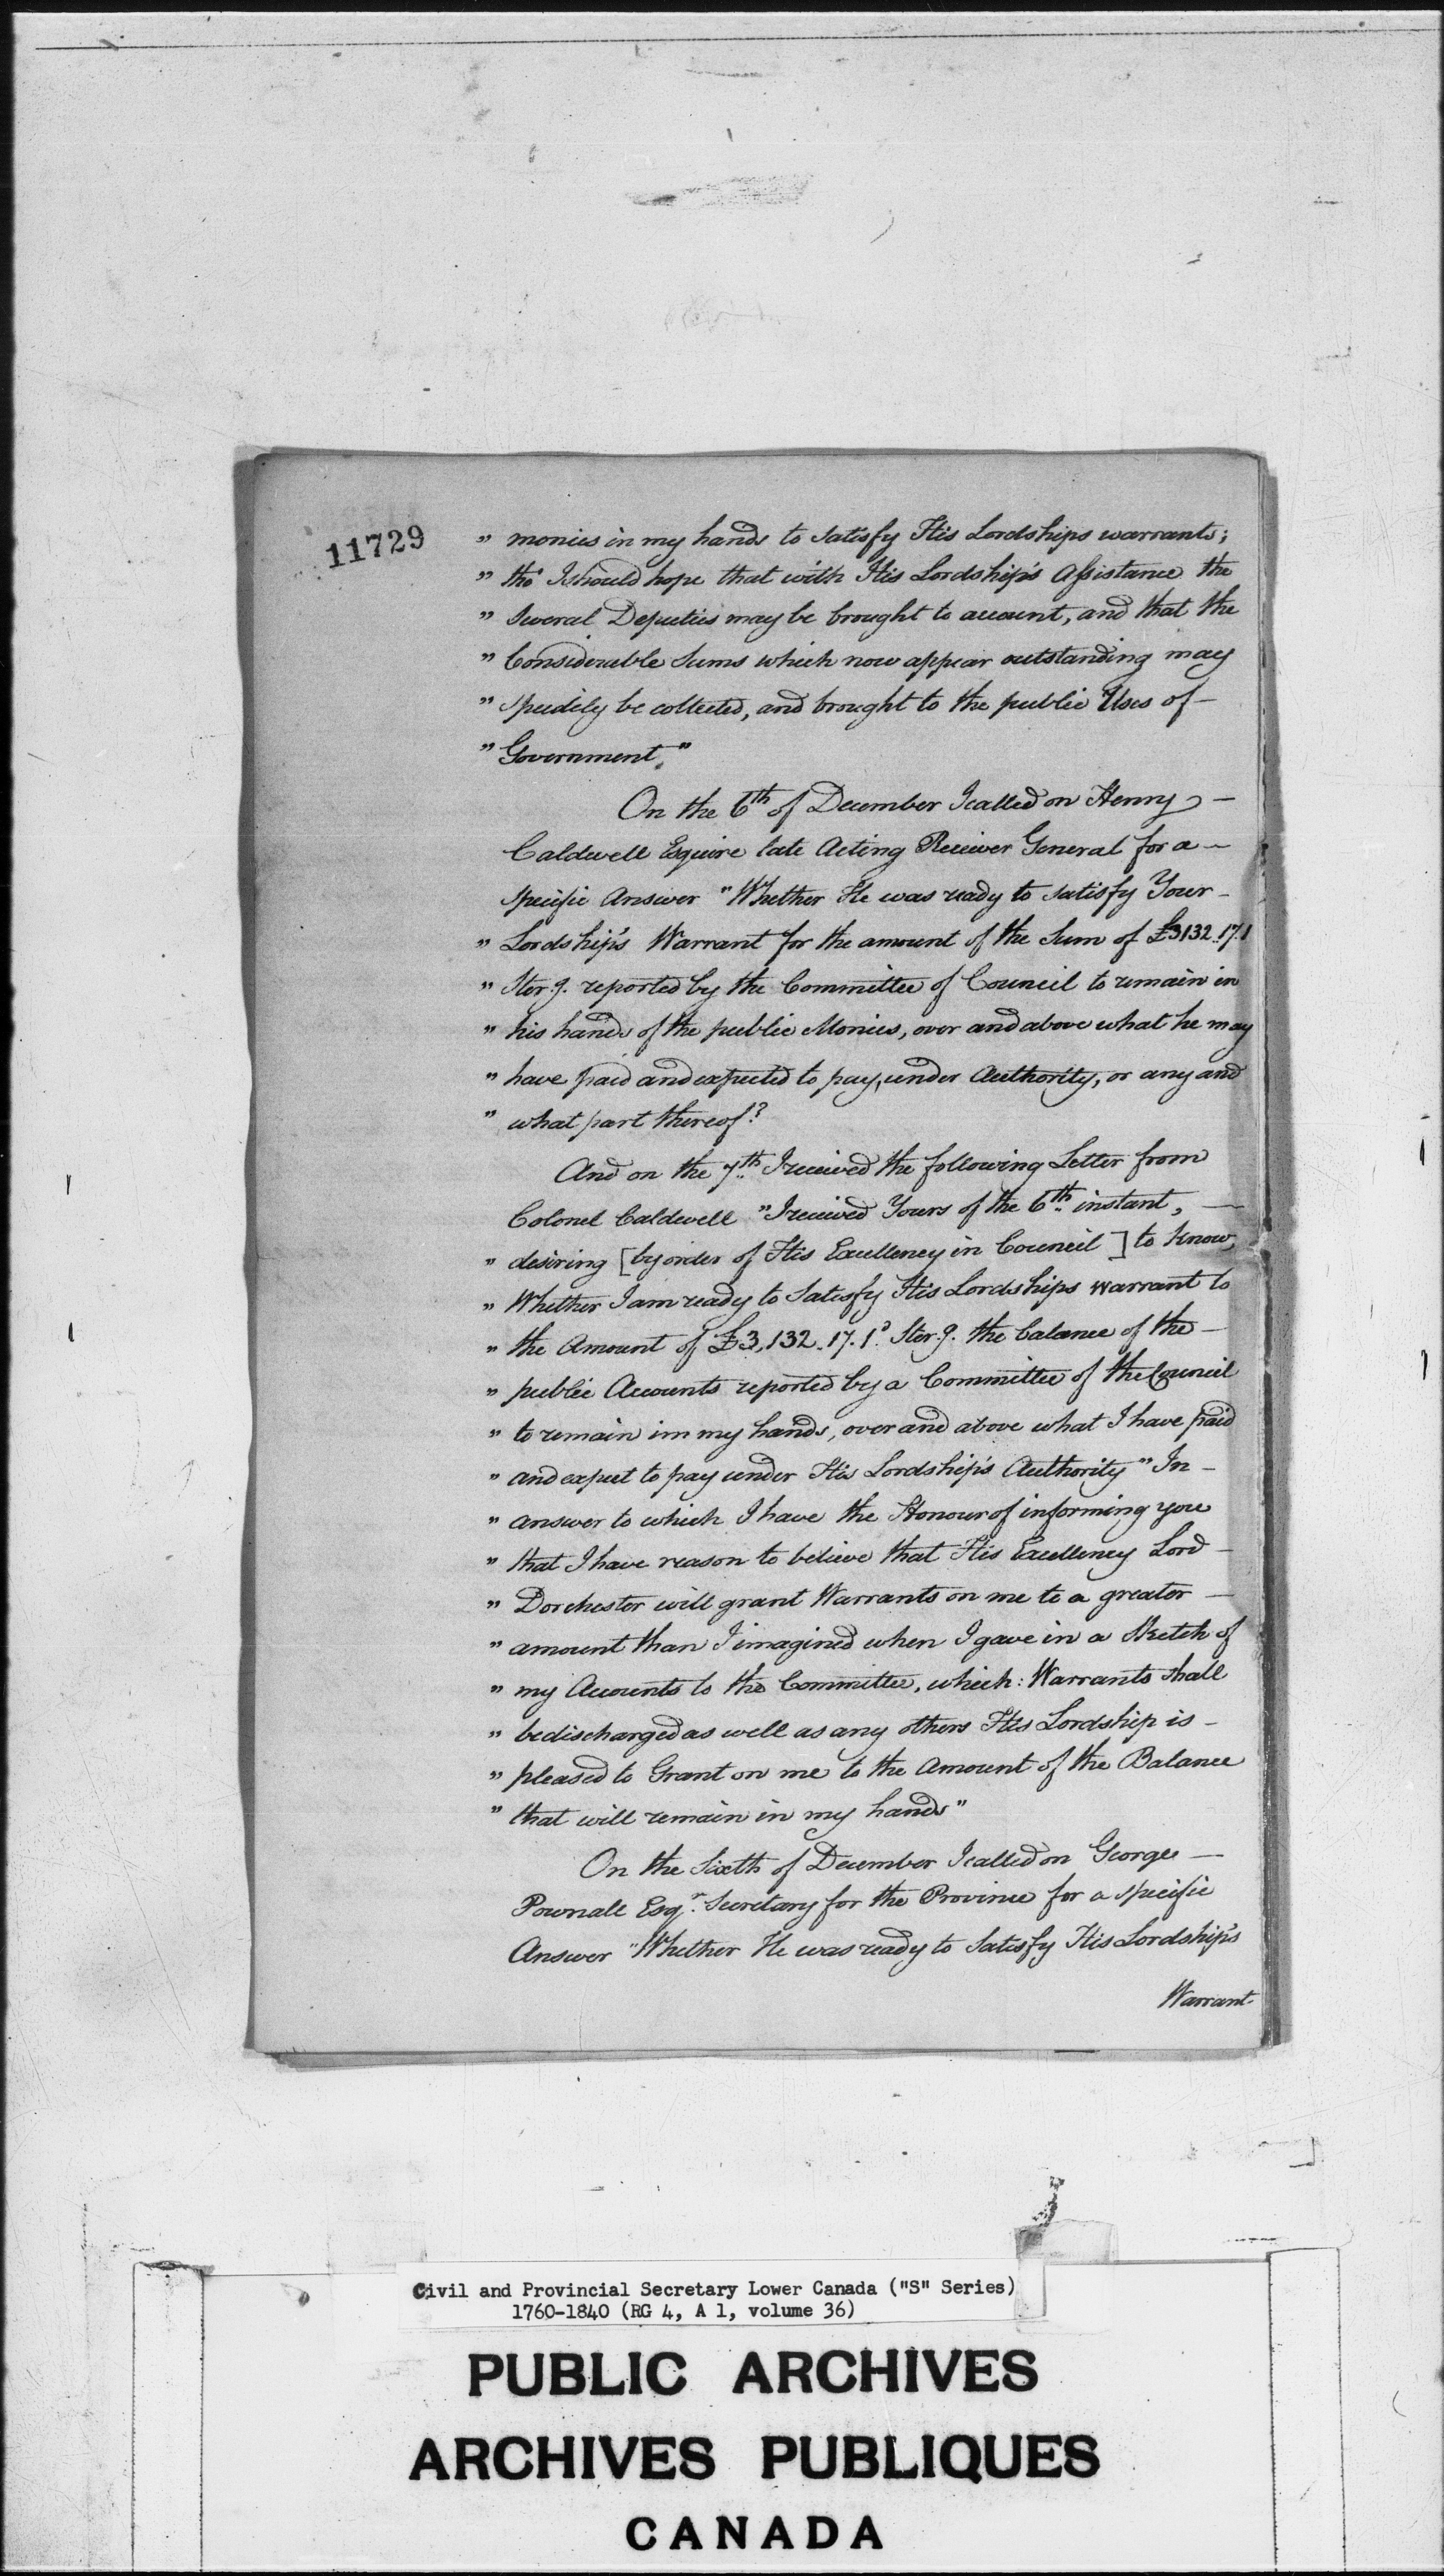 11729
" monies in my hands to satisfy His Lordships warrants;
" tho' I should hope that with His Lordship's Assistance the
" several Deputies may be brought to account, and that the
" Considerable Sums which now appear outstanding may
" speedily be collected, and brought to the public Uses of —
" Government."
On the 6th of December I called on Henry —
Caldwell Esquire late Acting Receiver General for a —
specific Answer "Whether He was ready to satisfy Your —
" Lordship's Warrant for the amount of the Sum of £3132.17.1
" Ster.g. reported by the Committee of Council to remain in
" his hands of the public Monies, over and above what he may
" have paid and expected to pay, under Authority, or any and
" what part thereof?
And on the 7th I received the following Letter from
Colonel Caldwell "I received Yours of the 6th instant, —
" desiring [by order of His Excellency in Council] to know,
" Whether I am ready to Satisfy His Lordships warrant to
" the Amount of £3,132.17.1d Ster.g. the balance of the —
" public Accounts reported by a Committee of the Council
" to remain im my hands, over and above what I have paid
" and expect to pay under His Lordship's Authority" In —
" answer to which I have the Honour of informing you
" that I have reason to believe that His Excellency Lord —
" Dorchester will grant Warrants on me to a greater —
" amount than I imagined when I gave in a Sketch of
" my Accounts to the Committee, which: Warrants shall
" be discharged as well as any others His Lordship is —
" pleased to Grant on me to the Amount of the Balance
" that will remain in my hands"
On the Sixth of December I called on George —
Pownall Esqr. Secretary for the Province for a specific
Answer "Whether He was ready to Satisfy His Lordship's
Warrant
Civil and Provincial Secretary Lower Canada ("S" Series)
1760-1840 (RG 4, A 1, volume 36)
PUBLIC ARCHIVES
ARCHIVES PUBLIQUES
CANADA